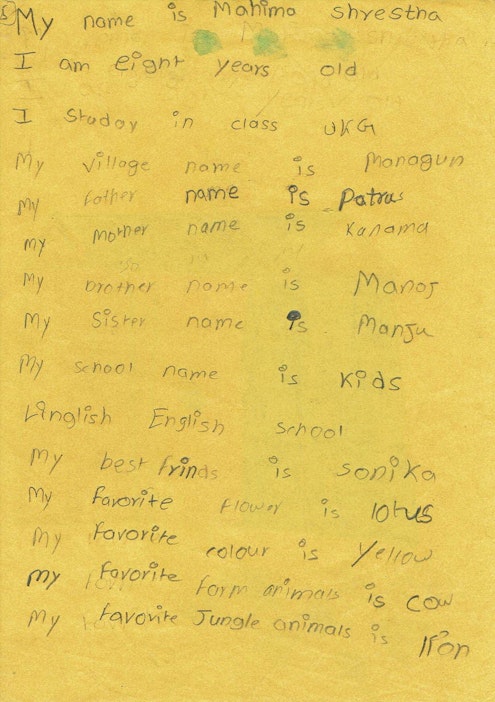 5 My name is Mahima Shrestha
I am eight years old
I Studay in class UKG
My village name is Managun
My father name is Patras
my mother name is Kanama
My brother name is Manoj
My Sister name is Manju
My school name is Kids
Linglish English school
My best frinds is sonika
My favorite flower is lotus
My favorite colour is Yellow
my favorite farm animals is cow
My favorite Jungle animals is lion